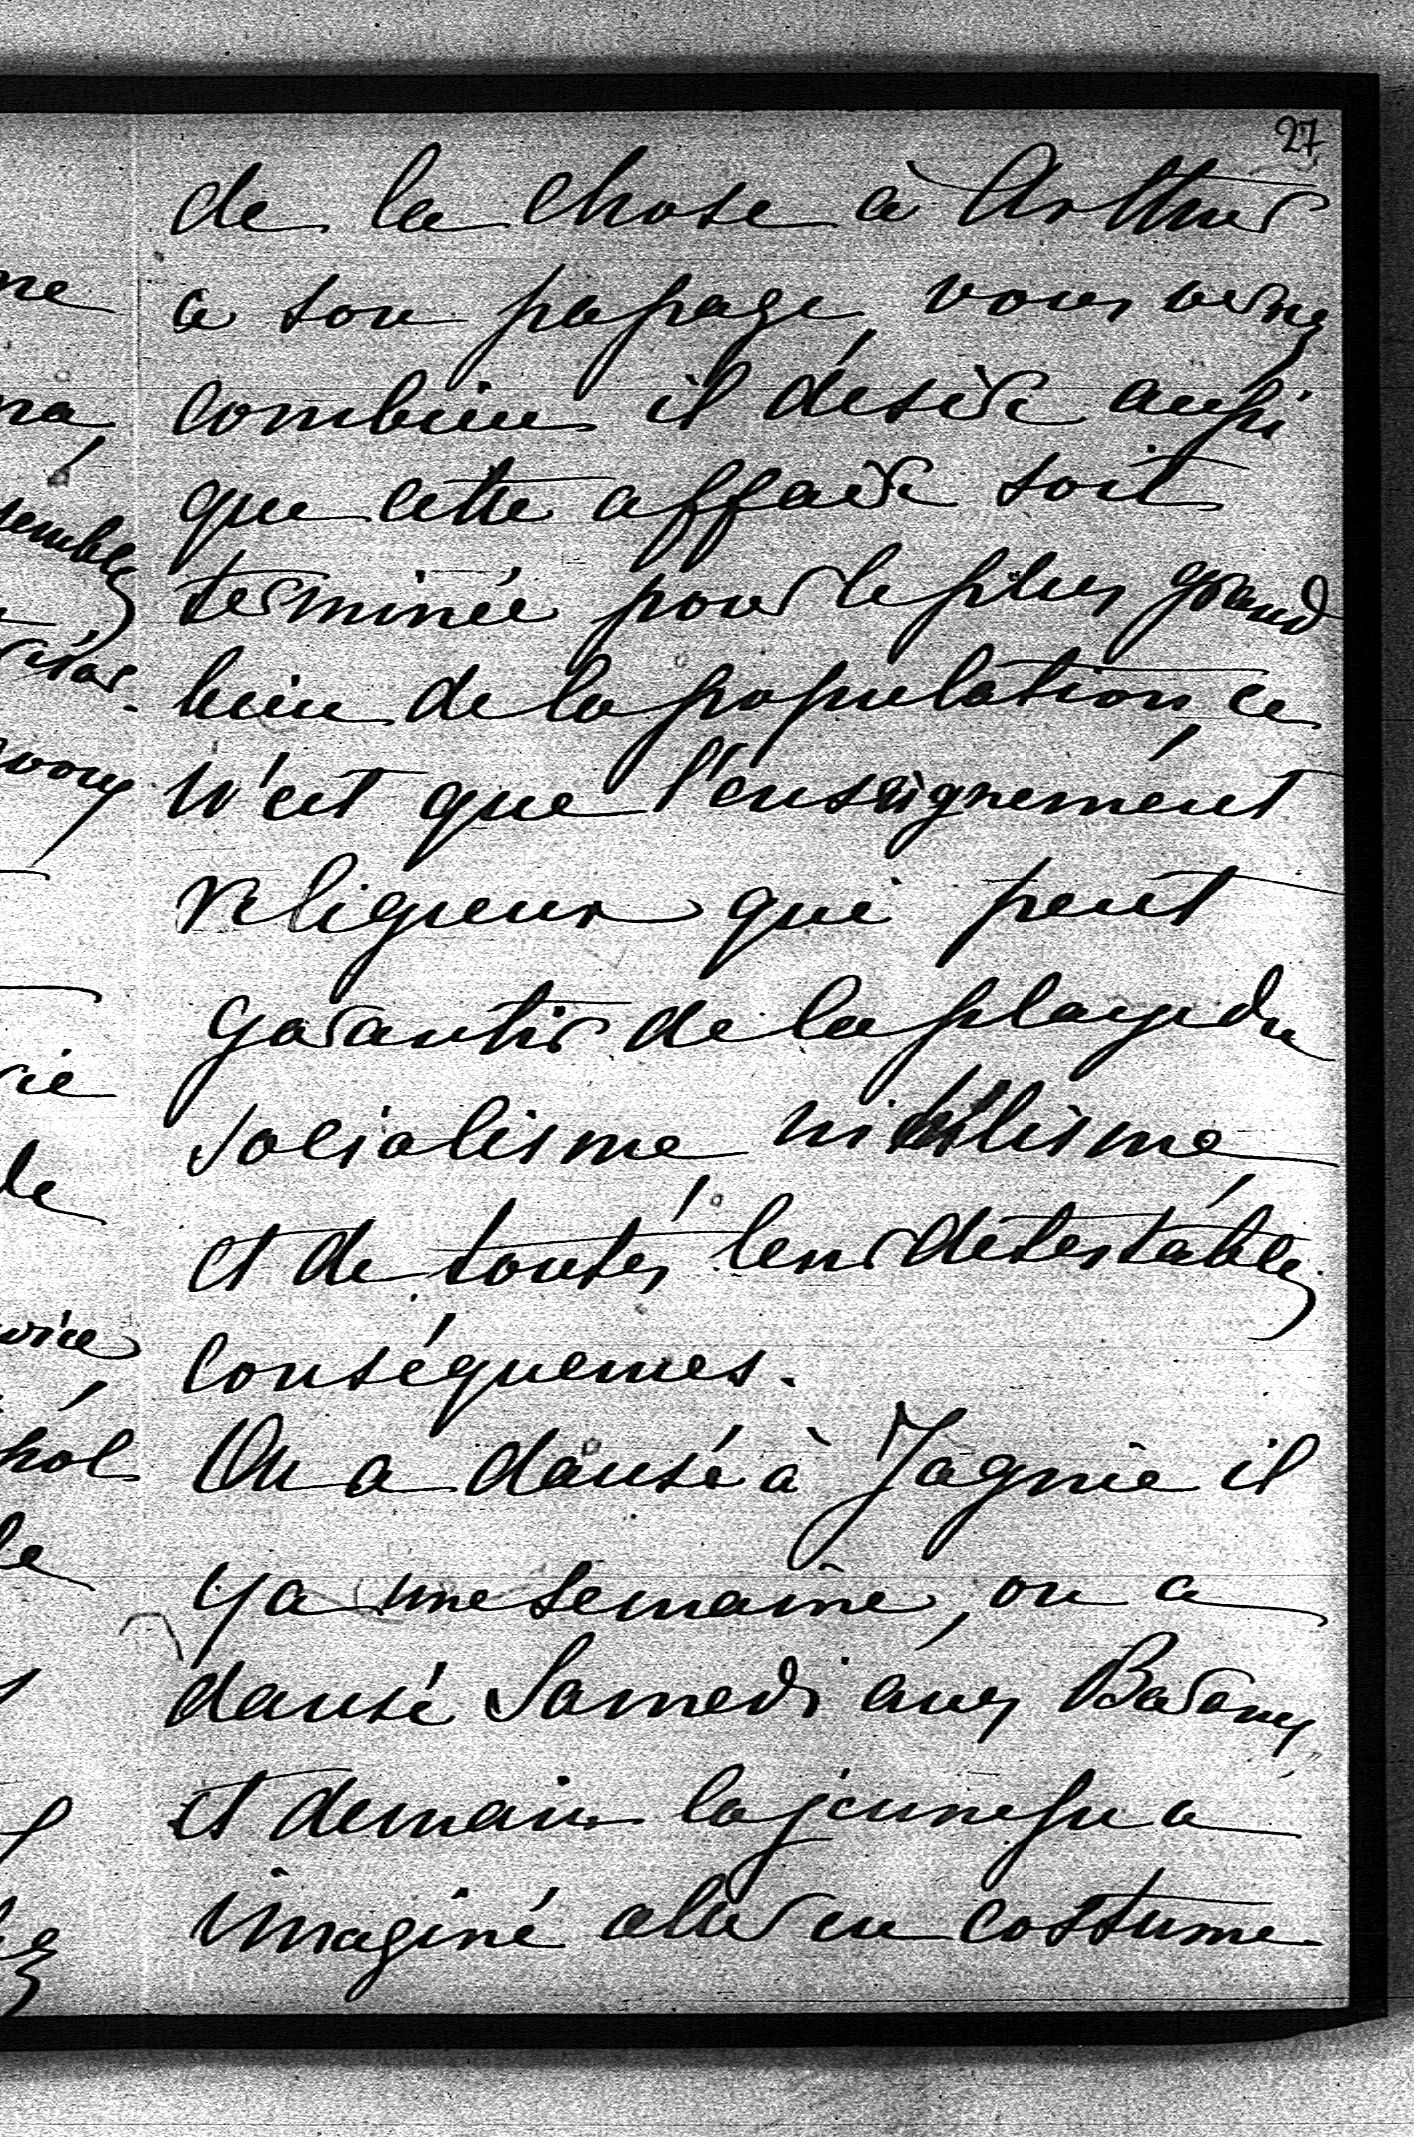 27
de la chose à Arthur
a son passage, vous verrez
combien il désire aussi
que cette affaire soit
terminée pour le plus grand
bien de la population, ce
n'est que l'enseignement
religieux qui peut
garantir de la playe du
socialisme, nihilisme,
et de toutes leurs détestables
conséquences.
On a dansé à Jagnie il
y a une semaine, on a
dansé Samedi aux Barany
et demain la jeunesse a
imaginé aller en costume